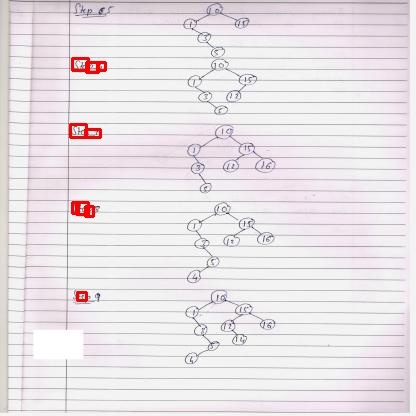 Step 5
10
1 15
3
5
10
1 15
3 12
5
10
1 15
3 12 16
5
10
1 15
3 12 16
5
4
9
10
1 15
3 12 16
5 14
4